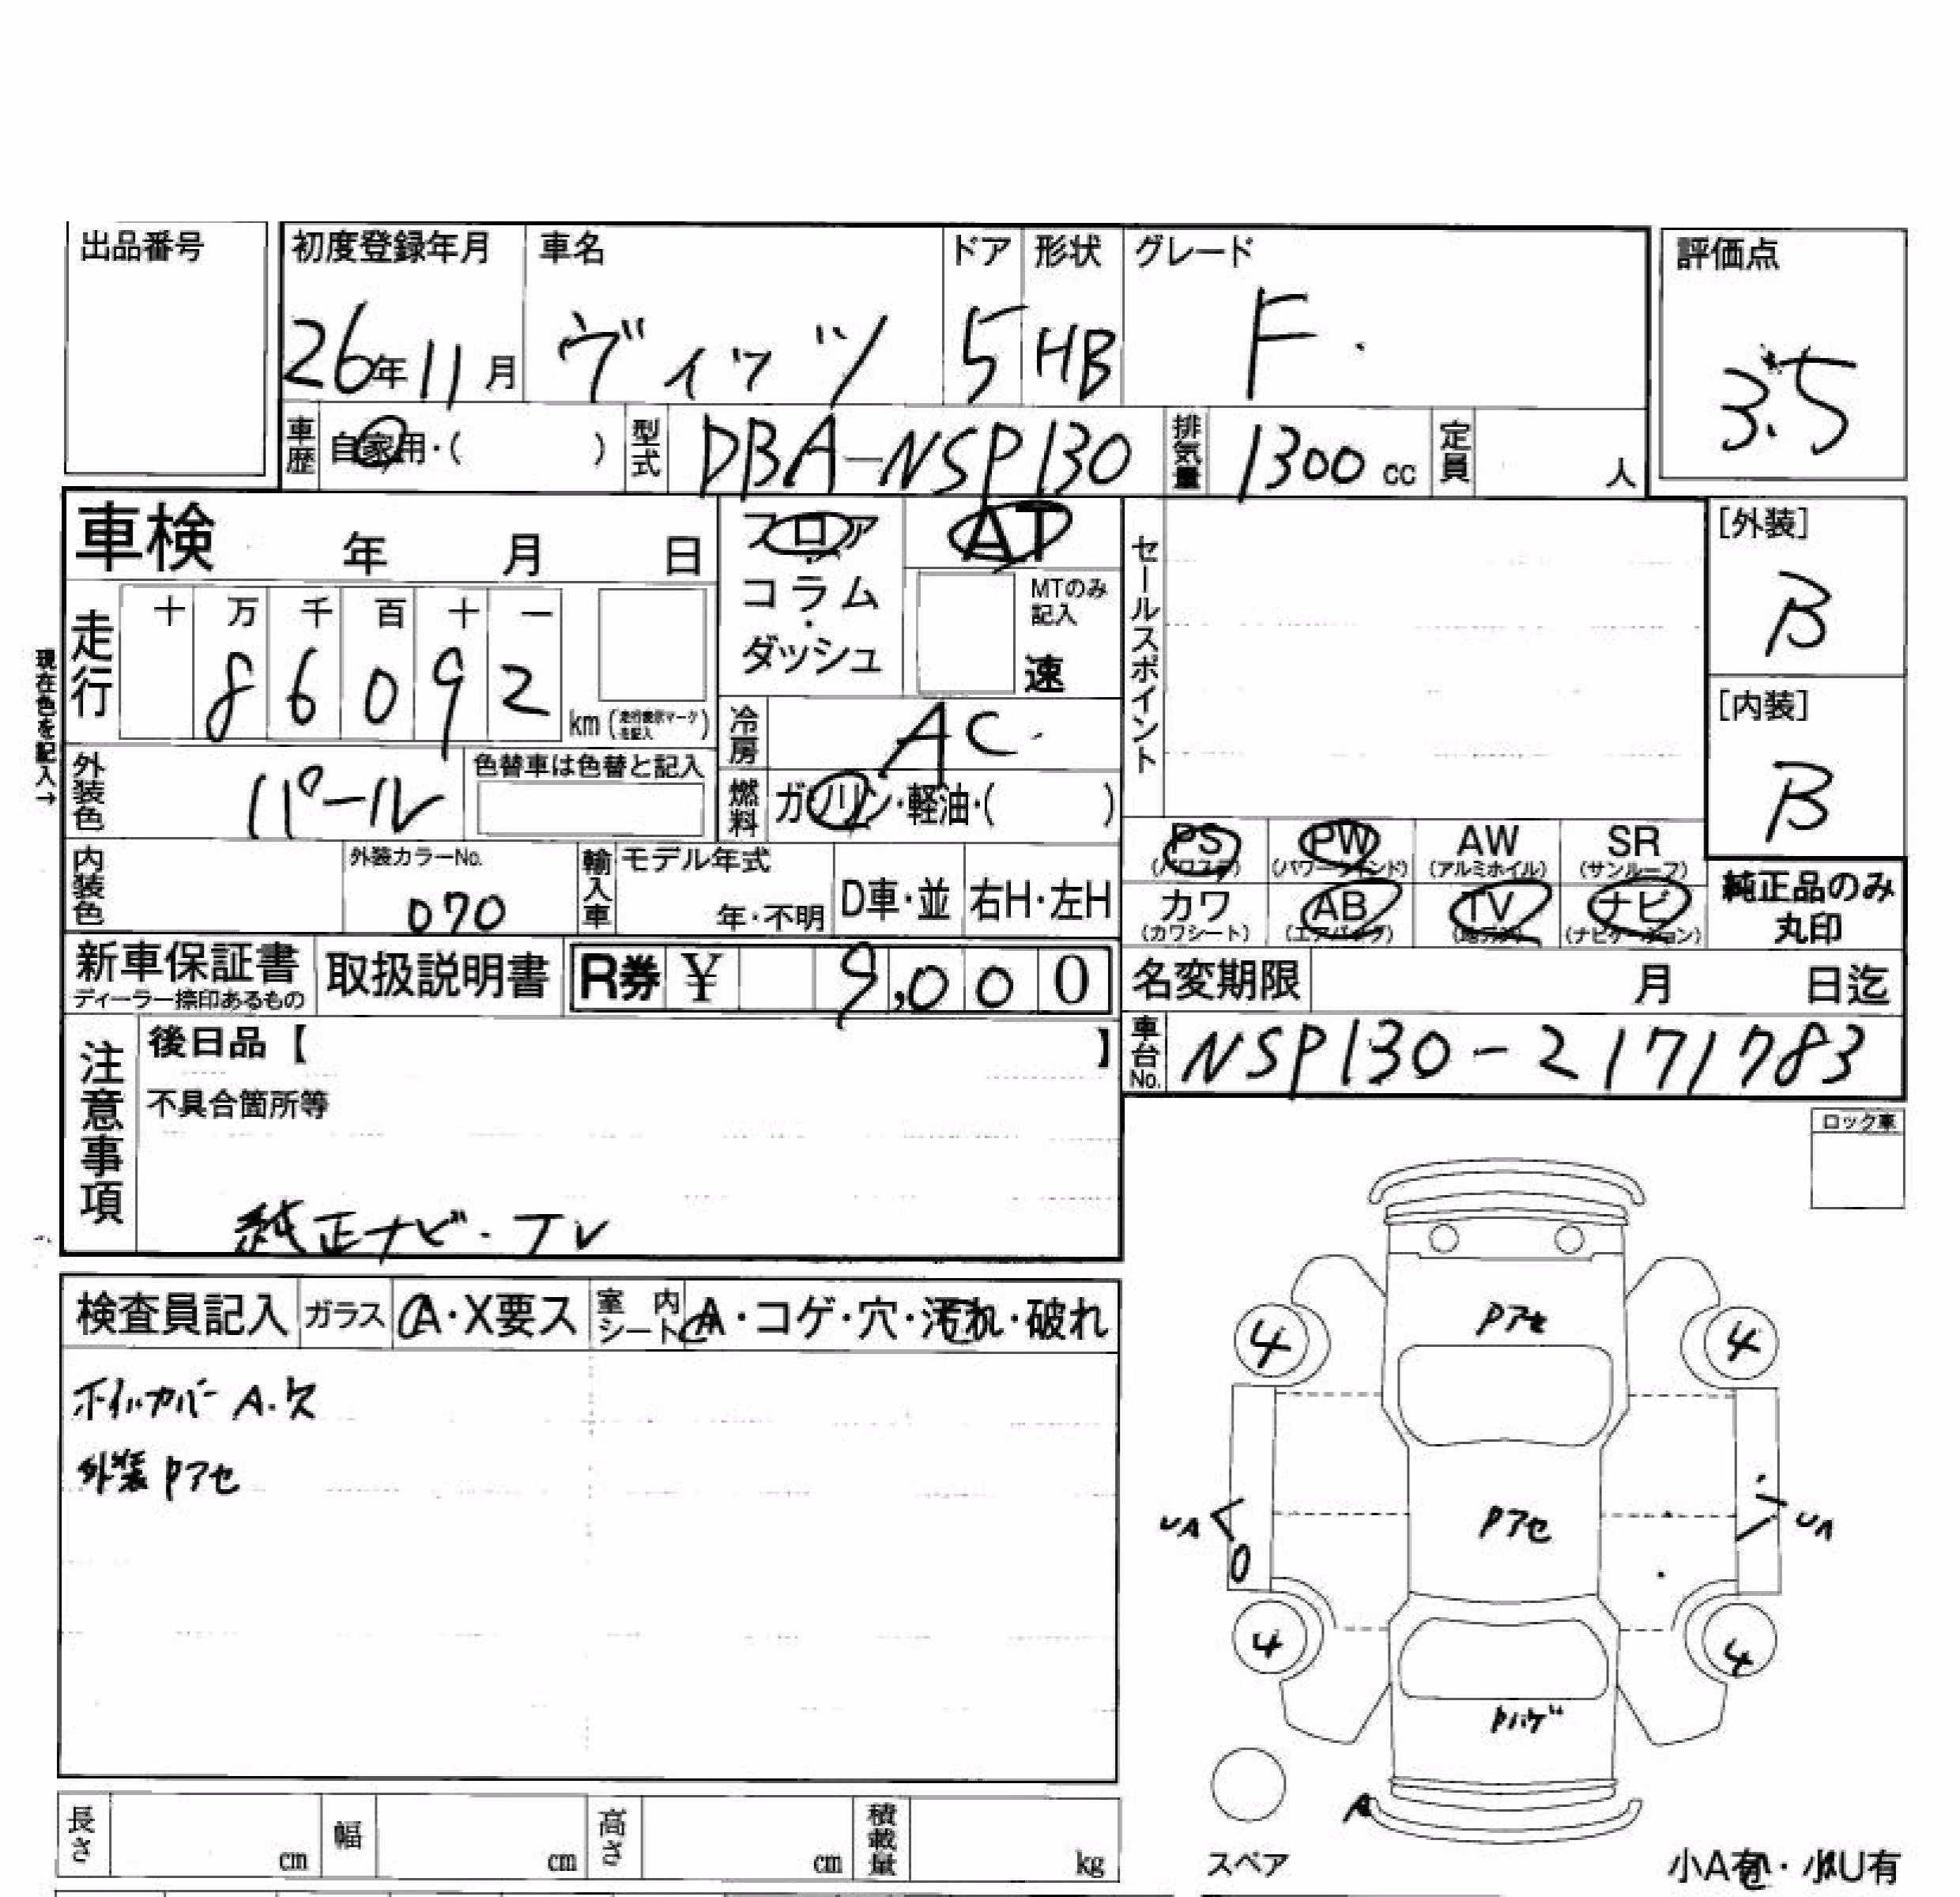 出品番号 初度登録年月 車名 ドア 形状 グレード 評価点
26年11月 ヴィッツ 5 HB F. 3.5
車歴 自家用・( ) 型式 DBA-NSP130 排気量 1300cc 定員 人
車検 年 月 日 フロア・コラム・ダッシュ AT
MTのみ記入 速
セールスポイント
[外装] B
現在色を記入→
走行 十 万 千 百 十 一
86092 km (走行表示マークを記入)
[内装] B
冷房 AC.
外装色 パール 色替車は色替と記入
燃料 ガソリン・軽油・( )
PS (パワステ) PW (パワーウインド) AW (アルミホイル) SR (サンルーフ)
カワ (カワシート) AB (エアバッグ) TV (地デジ) ナビ (ナビゲーション)
純正品のみ丸印
内装色 外装カラーNo. 070 輸入車 モデル年式 年・不明 D車・並 右H・左H
新車保証書 ディーラー捺印あるもの 取扱説明書 R券 ¥ 9,000
名変期限 月 日迄
車台No. NSP130-2171783
注意事項 後日品【 】
不具合箇所等
純正ナビ.TV
ロック車
検査員記入 ガラス A・X要ス 室内シート A・コゲ・穴・汚れ・破れ
ホイルカバー A.欠
外装 Pアセ
Pアセ
4 4
Pアセ
UA UA
0
4 4
Pハゲ
A
スペア
小A有・小U有
長さ cm 幅 cm 高さ cm 積載量 kg